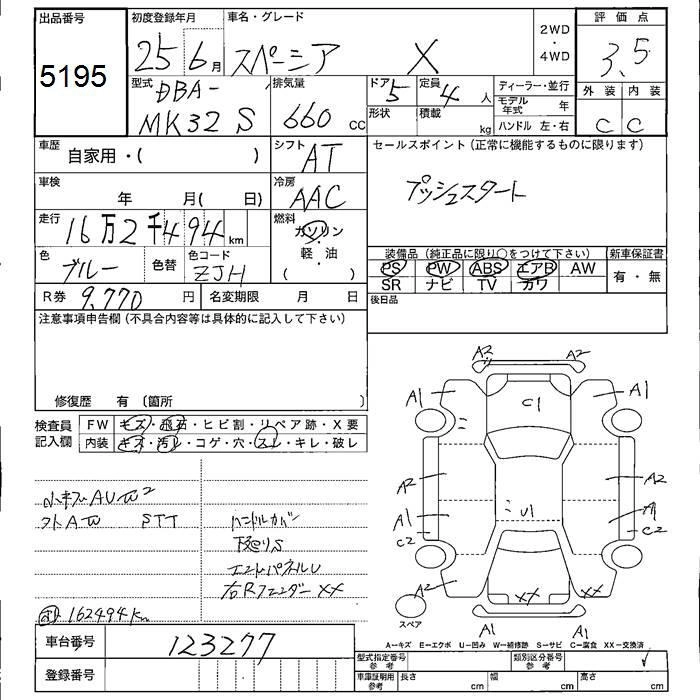 出品番号
5195
初度登録年月
25年6月
車名・グレード
スペーシア X
2WD
・
4WD
評価点
3.5
外装 内装
C C
型式
DBA-
MK32S
排気量
660 cc
ドア
5
定員
4 人
形状
積載
kg
ディーラー・並行
モデル年式 年
ハンドル 左・右
車歴
自家用・( )
シフト
AT
セールスポイント (正常に機能するものに限ります)
プッシュスタート
車検
年 月( 日)
冷房
AAC
走行
16万2千494 km
燃料
ガソリン
・
軽油
( )
色
ブルー
色替
色コード
ZJH
装備品 (純正品に限り○をつけて下さい)
新車保証書
PS PW ABS エアB AW
有・無
SR ナビ TV カワ
R券 9,770 円
名変期限 月 日
後日品
注意事項申告欄 (不具合内容等は具体的に記入して下さい)
修復歴 有 (箇所 )
検査員
記入欄
FW キズ・飛石・ヒビ割・リペア跡・X要
内装 キズ・汚レ・コゲ・穴・スレ・キレ・破レ
小キズAUW2
STT
ハンドルカバー
下廻りS
エンドパネルU
右Rフェンダー XX
162494km
A2
A2
A1
A1
C1
A2
A2
A1
A1
C2
C2
U1
A2
XX
XX
スペア
A1
A1
A−キズ E−エクボ U−凹み W−補修跡 S−サビ C−腐食 XX−交換済
車台番号
123277
登録番号
型式指定番号
参考
類別区分番号
参考
車庫証明用
参考
長さ cm
幅 cm
高さ cm